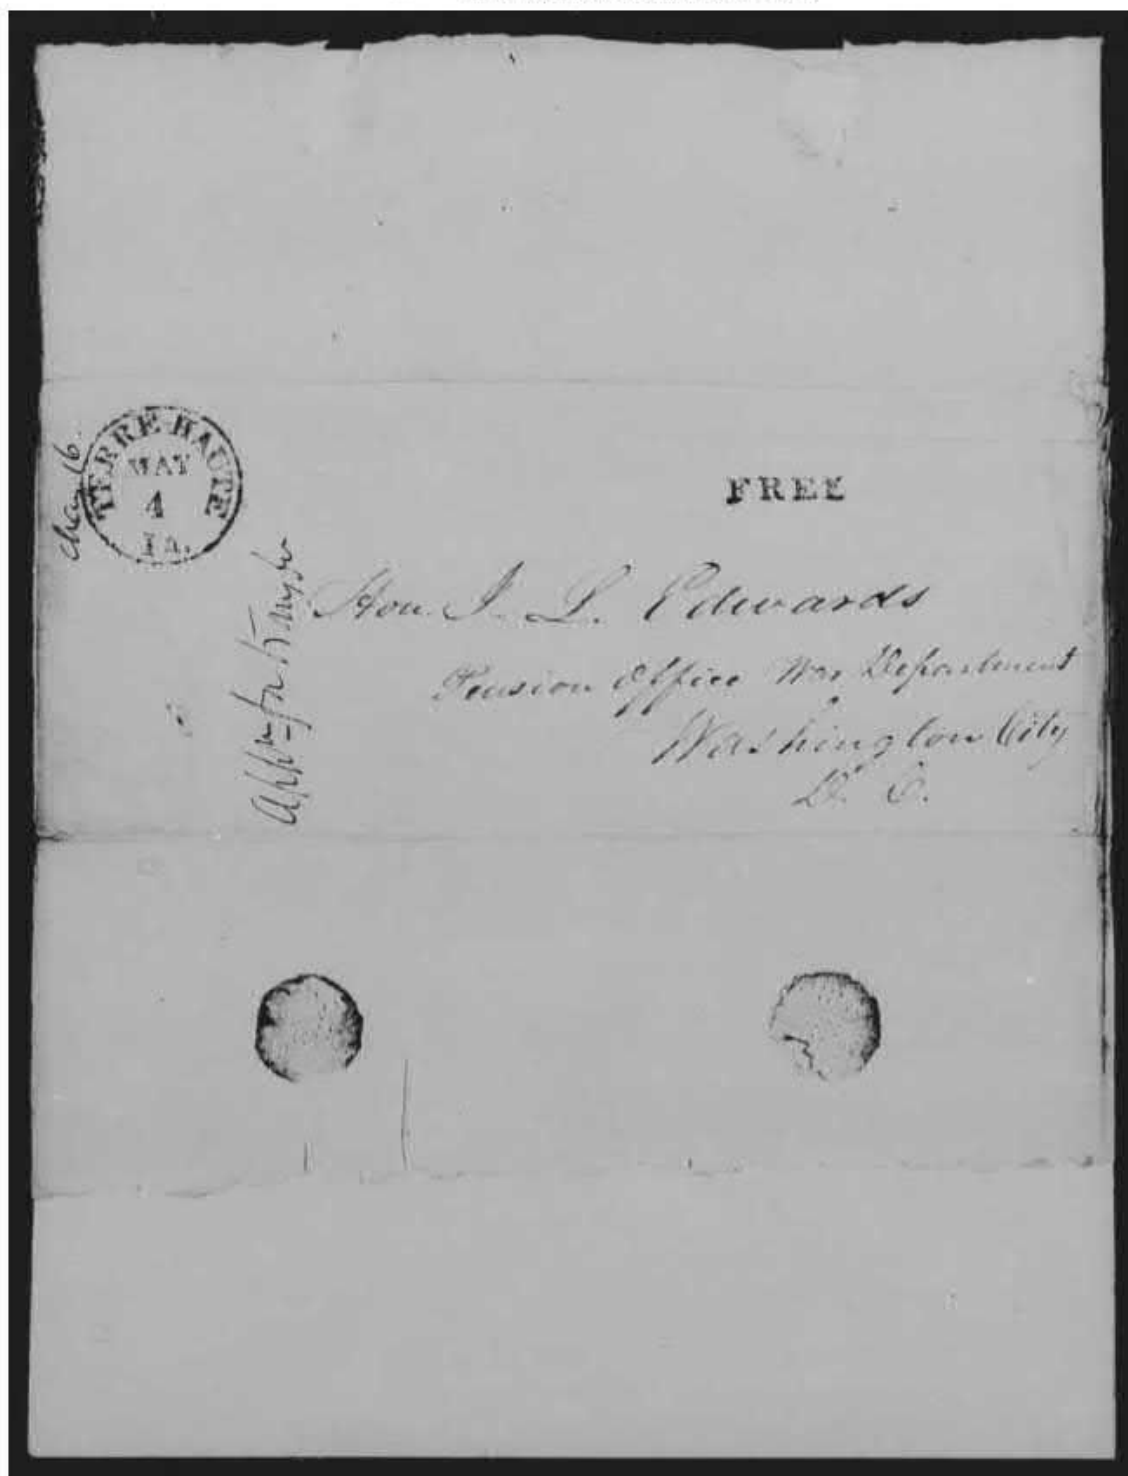 TERRE HAUTE
MAY
4
Ia.
FREE
Hon. J. L. Edwards
Pension Office War Department
Washington City
D. C.